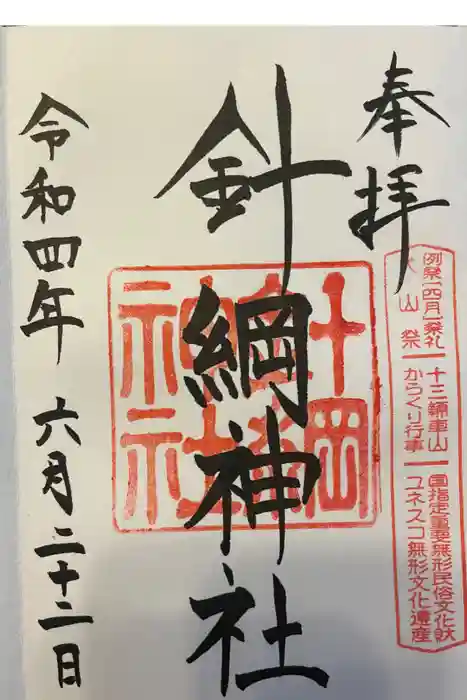 奉拝
例祭一四月一祭礼
犬山祭
十三輛車山
からくり行事
国指定重要無形民俗文化財
ユネスコ無形文化遺産
針綱神社
令和四年六月二十二日